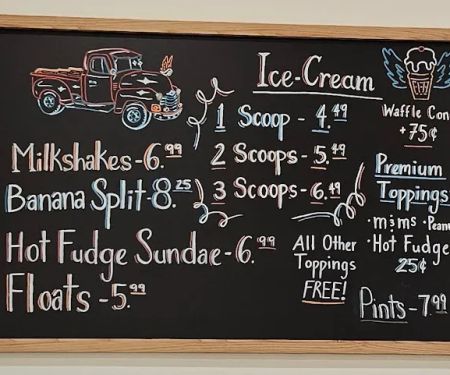 Ice-Cream
1 Scoop - 4.49
2 Scoops - 5.49
3 Scoops - 6.49
Milkshakes - 6.99
Banana Split - 8.25
Hot Fudge Sundae - 6.99
Floats - 5.99
All Other
Toppings
FREE!
Waffle Con
+75¢
Premium
Toppings
• m&ms • Pean
• Hot Fudge
25¢
Pints - 7.99